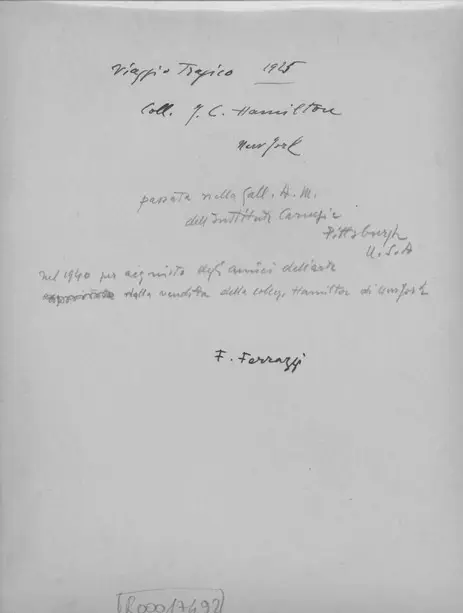 Viaggio Tragico 1925
Coll. J. C. Hamilton
New York
passata nella Gall. A. M.
dell'Instituto Carnegie
Pittsburgh
U.S.A
nel 1940 per acquisto degli amici dell'arte
dalla vendita della collez. Hamilton di New York
F. Ferrazzi
R00017492